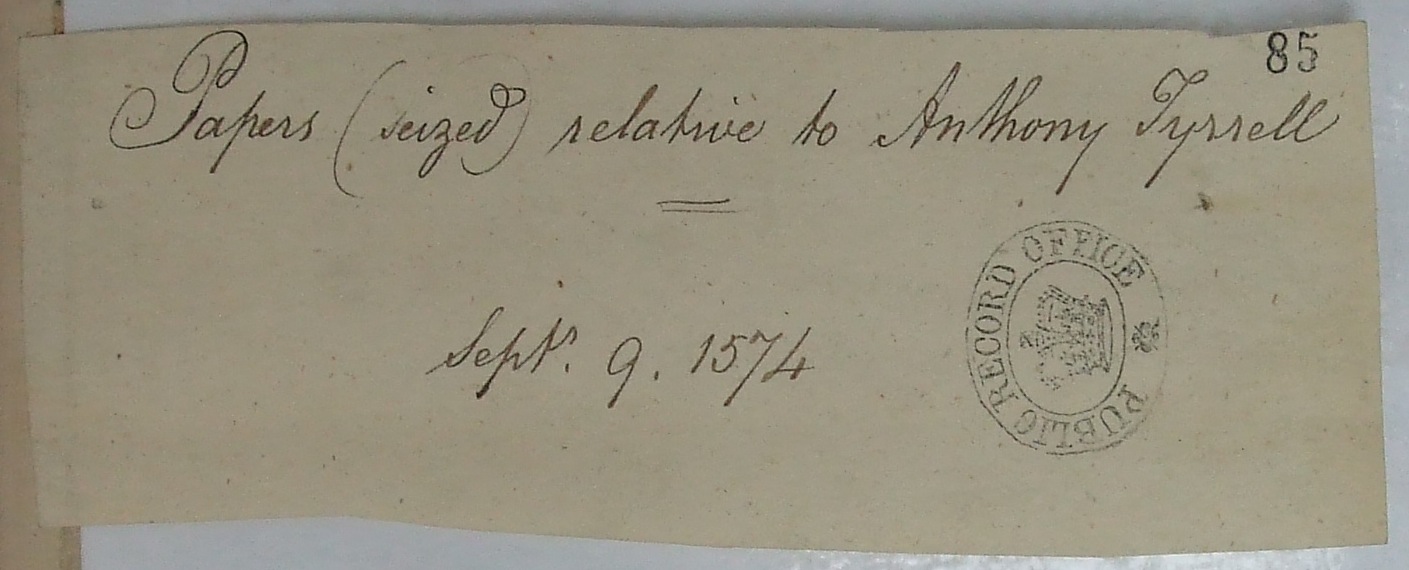 85
Papers (seized) relative to Anthony Tyrrell
Septr. 9. 1574
PUBLIC RECORD OFFICE